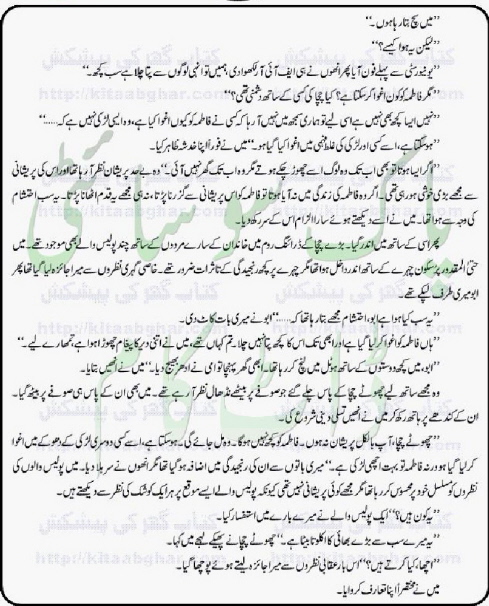 ”میں سچ بتا رہا ہوں۔“
”لیکن یہ ہوا کیسے؟“
”یونیورسٹی سے پہلے فون آیا پھر انھوں نے ہی ایف آئی آر لکھوا دی، ہمیں تو انہی لوگوں سے پتا چلا ہے سب کچھ۔“
”مگر فاطمہ کو کون اغوا کر سکتا ہے؟ کیا چچا کی کسی کے ساتھ دشمنی تھی؟“
”نہیں ایسا کچھ بھی نہیں ہے اسی لیے تو ہماری سمجھ میں نہیں آ رہا کہ کسی نے فاطمہ کو کیوں اغوا کیا ہے، وہ ایسی لڑکی نہیں ہے کہ......“
”ہو سکتا ہے، اسے کسی اور لڑکی کی غلط فہمی میں اغوا کیا گیا ہو۔“ میں نے فوراً اپنا خدشہ ظاہر کیا۔
”اگر ایسا ہوتا تو بھی اب تک وہ لوگ اسے چھوڑ چکے ہوتے مگر وہ اب تک گھر نہیں آئی۔“ وہ بے حد پریشان نظر آ رہا تھا اور اس کی پریشانی
سے مجھے بڑی خوشی ہو رہی تھی۔ اگر وہ فاطمہ کی زندگی میں نہ آیا ہوتا تو فاطمہ کو اس پریشانی سے گزرنا پڑتا، نہ ہی مجھے یہ قدم اٹھانا پڑتا۔ یہ سب احتشام
کی وجہ سے ہوا تھا۔ میں نے اسے دیکھتے ہوئے سارا الزام اس کے سر رکھ دیا۔
پھر اسی کے ساتھ میں اندر گیا۔ بڑے چچا کے ڈرائنگ روم میں خاندان کے سارے مردوں کے ساتھ چند پولیس والے بھی موجود تھے۔ میں
حتیٰ المقدور پرسکون چہرے کے ساتھ اندر داخل ہوا تھا مگر چہرے پر کچھ رنجیدگی کے تاثرات ضرور تھے۔ خاصی گہری نظروں سے میرا جائزہ لیا گیا تھا پھر
ابو میری طرف لپکے تھے۔
”یہ سب کیا ہوا ہے ابو، احتشام مجھے بتا رہا تھا کہ......“ ابو نے میری بات کاٹ دی۔
”ہاں فاطمہ کو اغوا کر لیا گیا ہے اور ابھی تک اس کا کچھ پتا نہیں چلا، تم کہاں تھے، میں نے اتنی دیر کا پیغام چھوڑا ہوا ہے، تمھارے لیے۔“
”ابو، میں کچھ دوستوں کے ساتھ ہوٹل میں لنچ کر رہا تھا۔ ابھی گھر پہنچا تو امی نے ادھر بھیج دیا۔“ میں نے انھیں بتایا۔
وہ مجھے ساتھ لیے چھوٹے چچا کے پاس چلے گئے جو صوفے پر بیٹھے نڈھال نظر آ رہے تھے۔ میں بھی ان کے پاس ہی صوفے پر بیٹھ گیا۔
ان کے کندھے پر ہاتھ رکھ کر میں نے انھیں تسلی دینی شروع کی۔
”چھوٹے چچا، آپ بالکل پریشان نہ ہوں۔ فاطمہ کو کچھ نہیں ہوگا۔ وہ مل جائے گی۔ ہو سکتا ہے، اسے کسی دوسری لڑکی کے دھوکے میں اغوا
کر لیا گیا ہو ورنہ فاطمہ تو بہت اچھی لڑکی ہے۔“ میری باتوں سے ان کی رنجیدگی میں اضافہ ہو گیا تھا مگر انھوں نے سر ہلا دیا۔ میں پولیس والوں کی
نظروں کو مسلسل خود پر محسوس کر رہا تھا مگر مجھے کوئی پریشانی نہیں تھی کیونکہ پولیس والے ایسے موقع پر ہر ایک کو شک کی نظر سے دیکھتے ہیں۔
”یہ کون ہیں؟“ ایک پولیس والے نے میرے بارے میں استفسار کیا۔
”یہ میرے سب سے بڑے بھائی کا اکلوتا بیٹا ہے۔“ چھوٹے چچا نے پھیکے لہجے میں کہا۔
”اچھا، کیا کرتے ہیں؟“ اس بار عقابی نظروں سے میرا جائزہ لیتے ہوئے پوچھا گیا۔
میں نے مختصراً اپنا تعارف کروایا۔